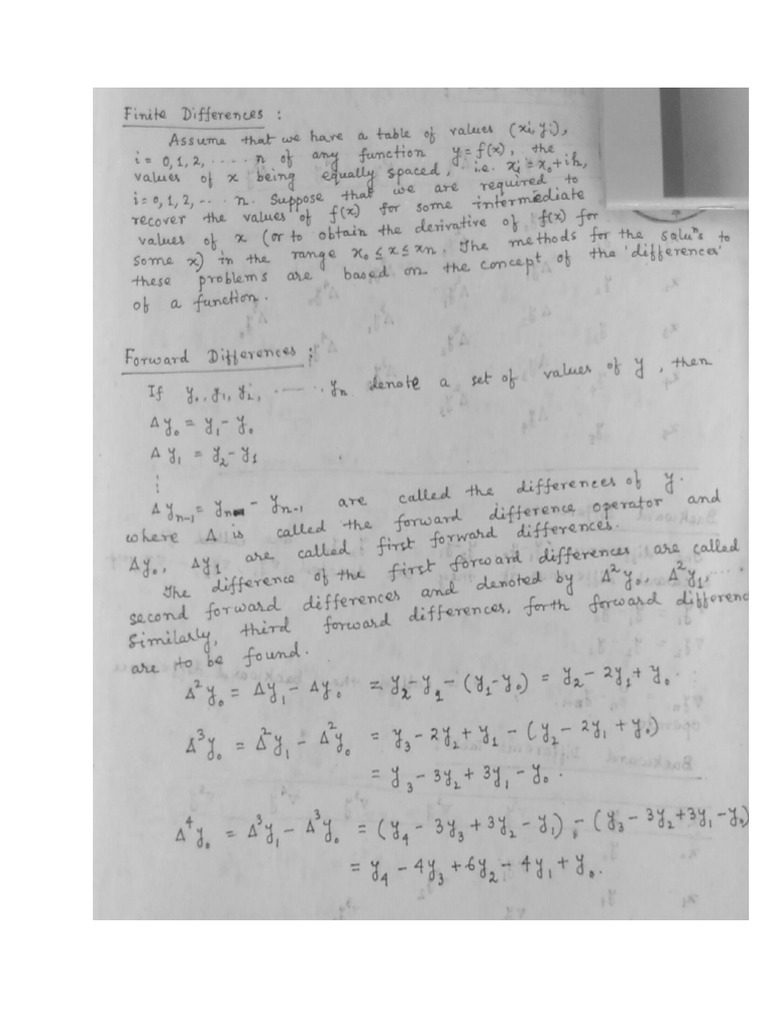 Finite Differences :
Assume that we have a table of values (xi, yi),
i = 0, 1, 2, ..... n of any function y = f(x), the
values of x being equally spaced, i.e. xi = x₀ + ih,
i = 0, 1, 2, ... n. Suppose that we are required to
recover the values of f(x) for some intermediate
values of x (or to obtain the derivative of f(x) for
some x) in the range x₀ ≤ x ≤ xn. The methods for the soluⁿs to
these problems are based on the concept of the 'differences'
of a function.
Forward Differences :
If y₀, y₁, y₂, ........ yn denote a set of values of y, then
Δy₀ = y₁ - y₀
Δy₁ = y₂ - y₁
⋮
Δyn-1 = yn - yn-1 are called the differences of y.
where Δ is called the forward difference operator and
Δy₀, Δy₁ are called first forward differences.
The difference of the first forward differences are called
second forward differences and denoted by Δ²y₀, Δ²y₁, ....
Similarly, third forward differences, forth forward differenc
are to be found.
Δ²y₀ = Δy₁ - Δy₀ = y₂ - y₁ - (y₁ - y₀) = y₂ - 2y₁ + y₀.
Δ³y₀ = Δ²y₁ - Δ²y₀ = y₃ - 2y₂ + y₁ - (y₂ - 2y₁ + y₀)
= y₃ - 3y₂ + 3y₁ - y₀.
Δ⁴y₀ = Δ³y₁ - Δ³y₀ = (y₄ - 3y₃ + 3y₂ - y₁) - (y₃ - 3y₂ + 3y₁ - y₀)
= y₄ - 4y₃ + 6y₂ - 4y₁ + y₀.